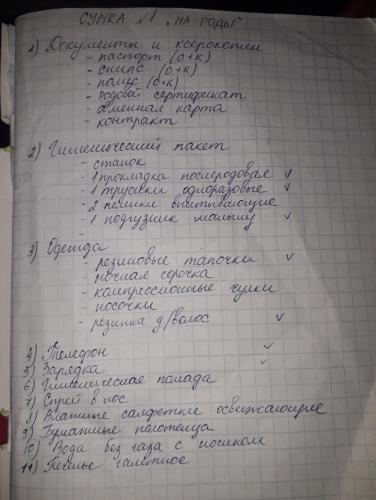 СУМКА №1 "НА РОДЫ"
1) Документы и ксерокопии
- паспорт (о+к)
- снилс (о+к)
- полис (о+к)
- родовой сертификат
- обменная карта
- контракт
2) Гигиенический пакет
- станок
- 1 прокладка послеродовая ✓
- 1 трусики одноразовые ✓
- 2 пеленки впитывающие
- 1 подгузник малышу ✓
-
3) Одежда
- резиновые тапочки ✓
- ночная сорочка
- компрессионные чулки
- носочки
- резинка д/волос ✓
4) Телефон ✓
5) Зарядка ✓
6) Гигиеническая помада
7) Спрей в нос
8) Влажные салфетки освежающие
9) Бумажные полотенца
10) Вода без газа с носиком
11) Печенье галетное